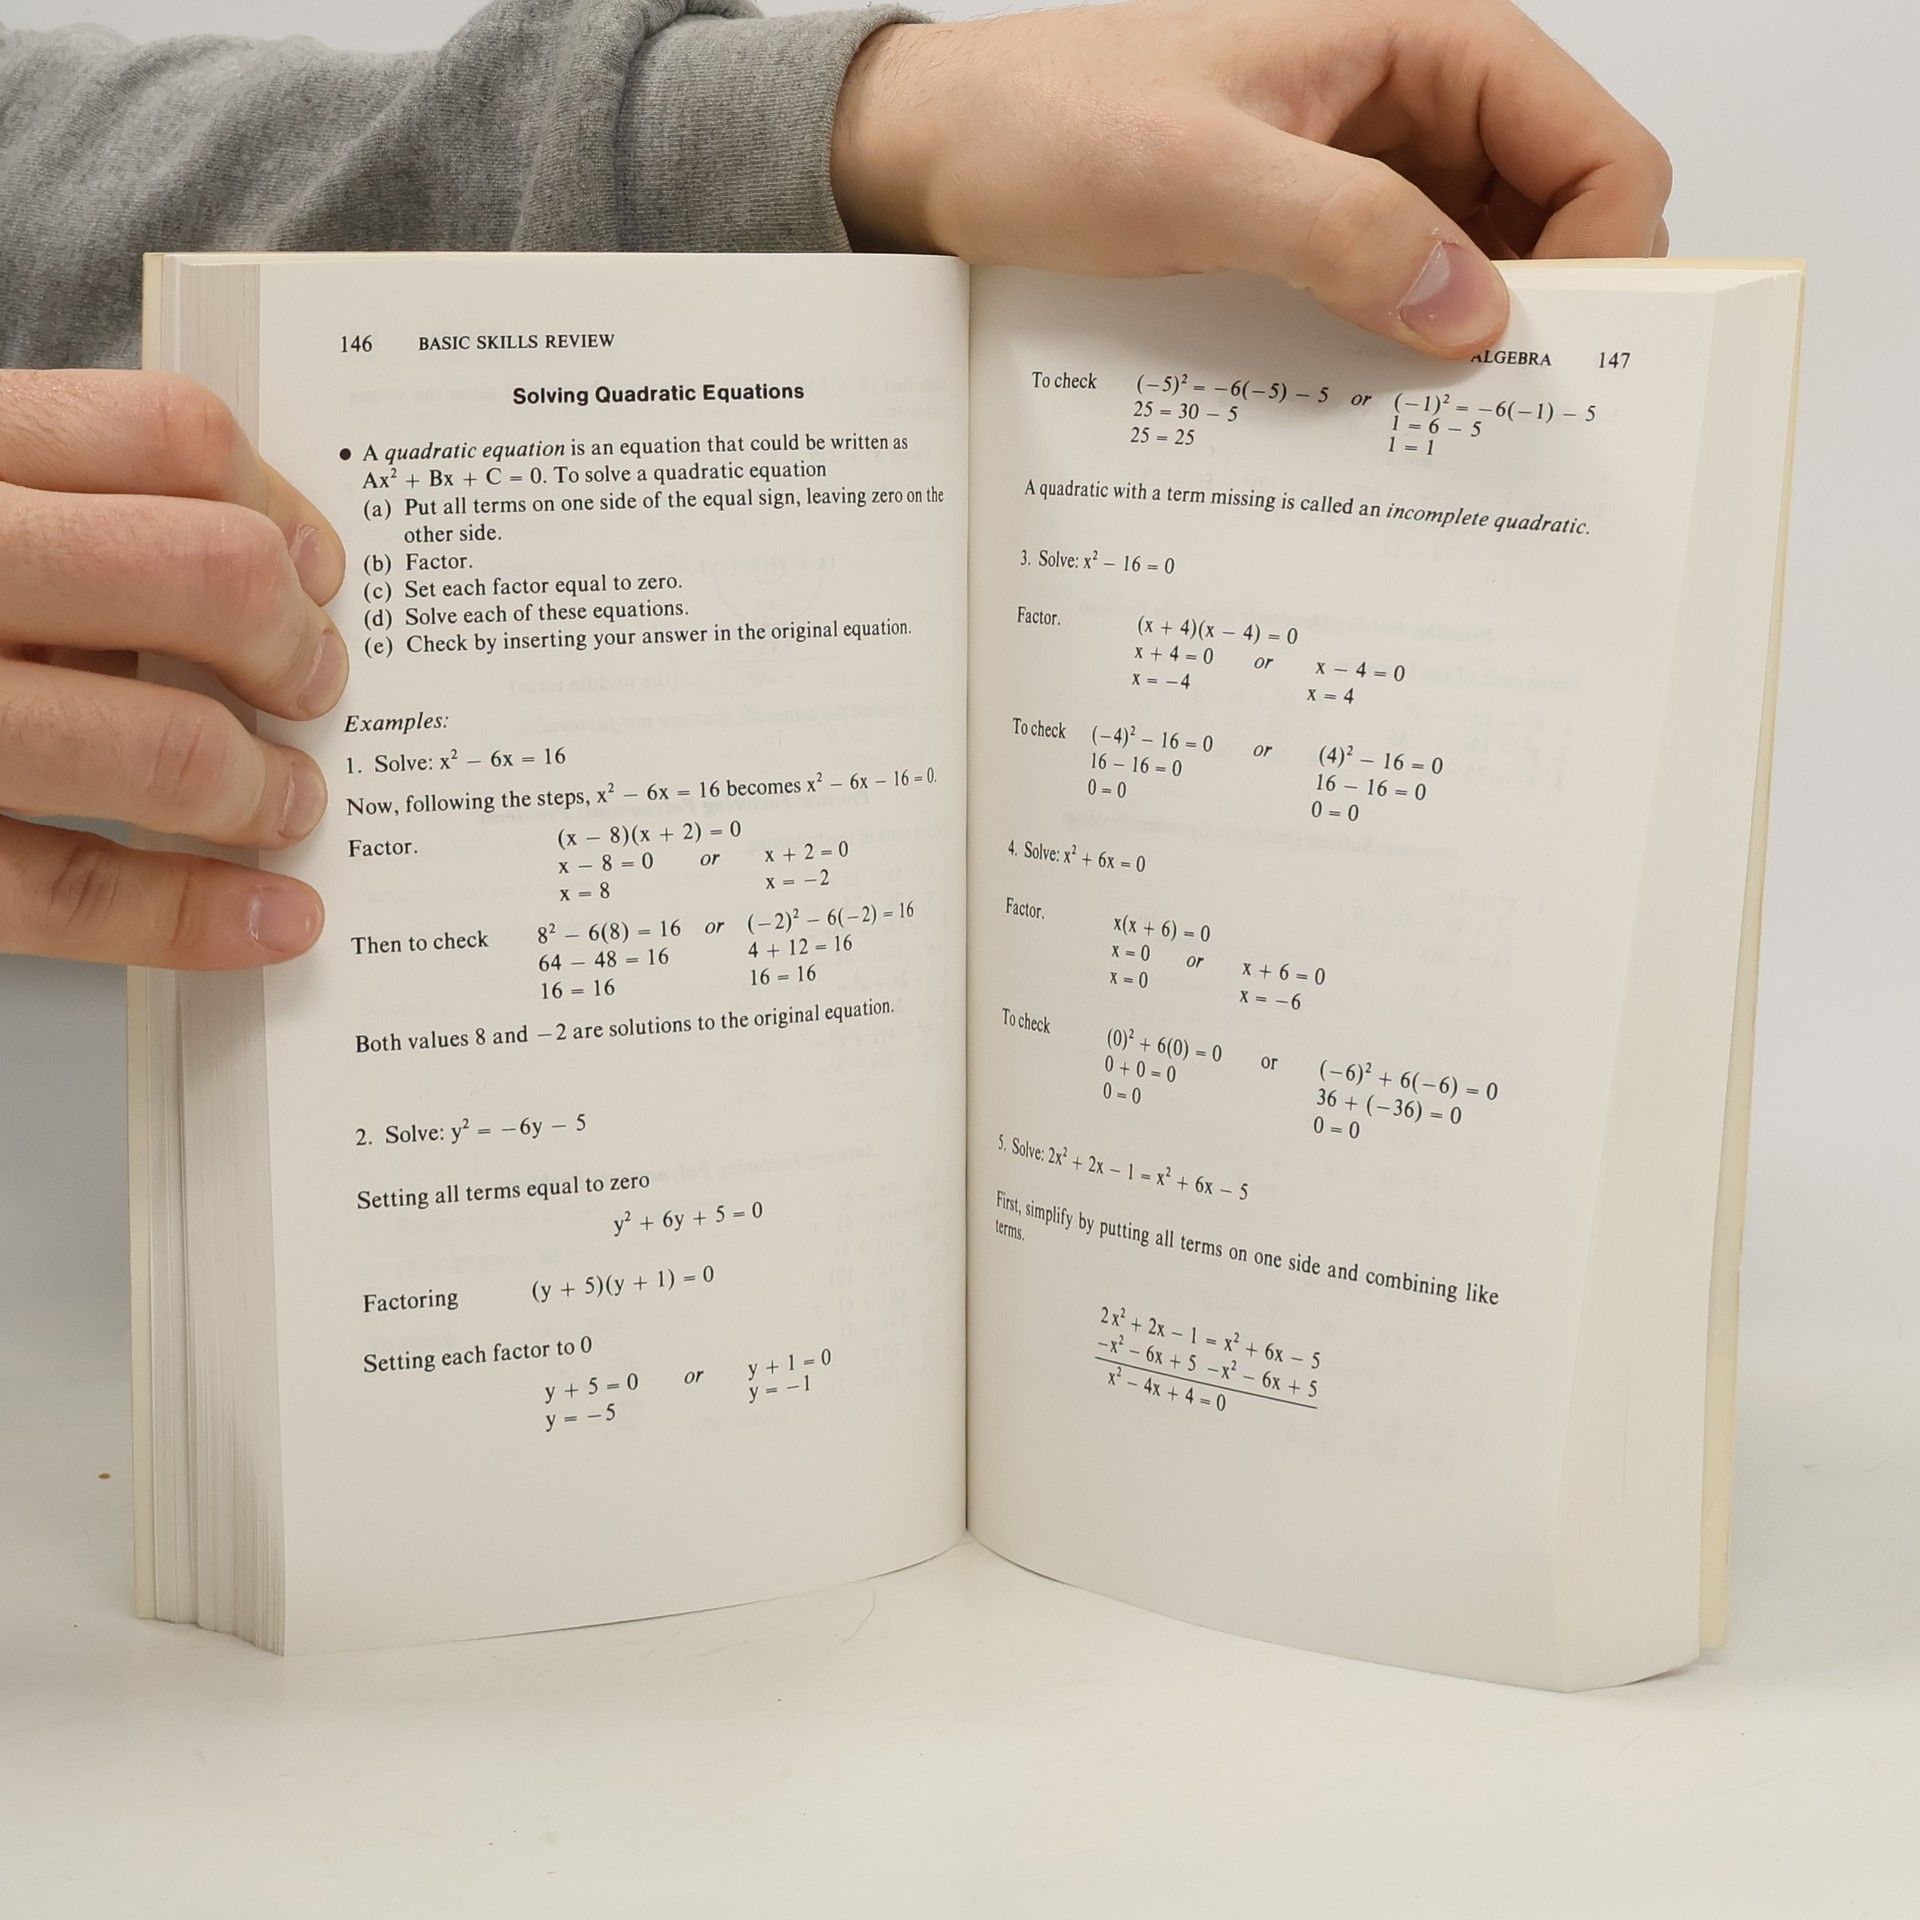 146 BASIC SKILLS REVIEW
Solving Quadratic Equations
● A quadratic equation is an equation that could be written as
Ax² + Bx + C = 0. To solve a quadratic equation
(a) Put all terms on one side of the equal sign, leaving zero on the
other side.
(b) Factor.
(c) Set each factor equal to zero.
(d) Solve each of these equations.
(e) Check by inserting your answer in the original equation.
Examples:
1. Solve: x² − 6x = 16
Now, following the steps, x² − 6x = 16 becomes x² − 6x − 16 = 0.
Factor. (x − 8)(x + 2) = 0
x − 8 = 0 or x + 2 = 0
x = 8 x = −2
Then to check 8² − 6(8) = 16 or (−2)² − 6(−2) = 16
64 − 48 = 16 4 + 12 = 16
16 = 16 16 = 16
Both values 8 and −2 are solutions to the original equation.
2. Solve: y² = −6y − 5
Setting all terms equal to zero
y² + 6y + 5 = 0
Factoring (y + 5)(y + 1) = 0
Setting each factor to 0
y + 5 = 0 or y + 1 = 0
y = −5 y = −1
ALGEBRA 147
To check (−5)² = −6(−5) − 5 or (−1)² = −6(−1) − 5
25 = 30 − 5 1 = 6 − 5
25 = 25 1 = 1
A quadratic with a term missing is called an incomplete quadratic.
3. Solve: x² − 16 = 0
Factor. (x + 4)(x − 4) = 0
x + 4 = 0 or x − 4 = 0
x = −4 x = 4
To check (−4)² − 16 = 0 or (4)² − 16 = 0
16 − 16 = 0 16 − 16 = 0
0 = 0 0 = 0
4. Solve: x² + 6x = 0
Factor. x(x + 6) = 0
x = 0 or x + 6 = 0
x = 0 x = −6
To check (0)² + 6(0) = 0 or (−6)² + 6(−6) = 0
0 + 0 = 0 36 + (−36) = 0
0 = 0 0 = 0
5. Solve: 2x² + 2x − 1 = x² + 6x − 5
First, simplify by putting all terms on one side and combining like
terms.
2x² + 2x − 1 = x² + 6x − 5
−x² − 6x + 5 −x² − 6x + 5
x² − 4x + 4 = 0